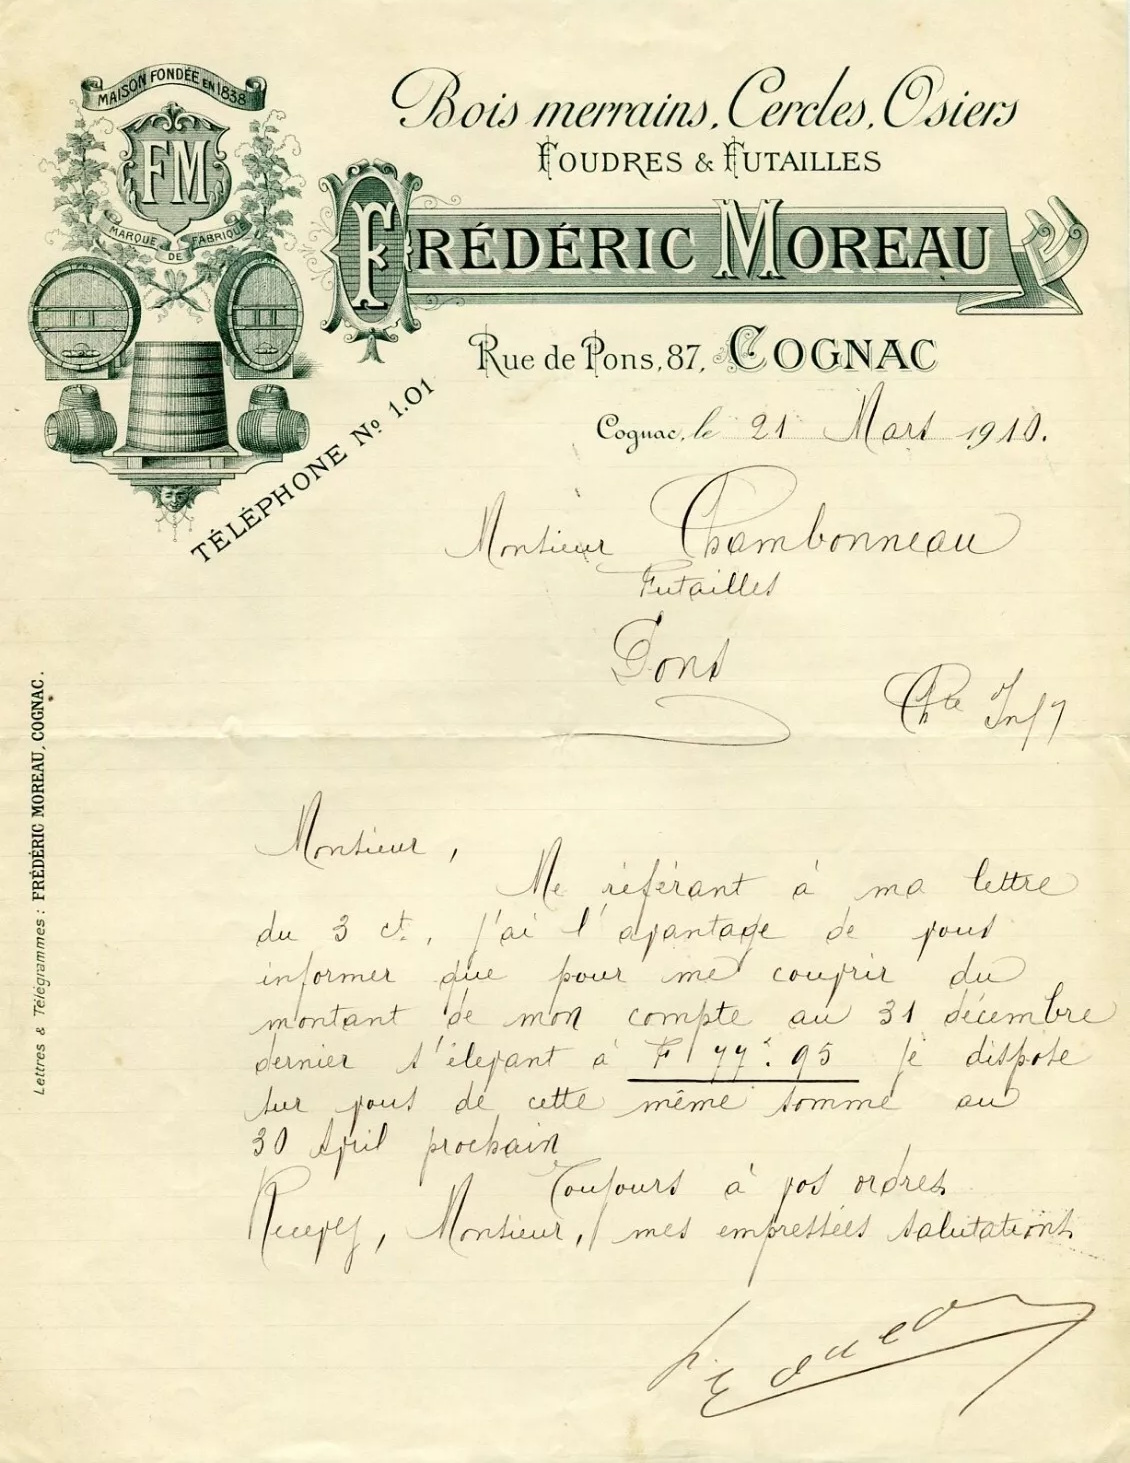 MAISON FONDÉE EN 1838
FM
MARQUE DE FABRIQUE
Bois merrains, Cercles, Osiers
FOUDRES & FUTAILLES
FRÉDÉRIC MOREAU
Rue de Pons, 87, COGNAC
TÉLÉPHONE No 1.01
Cognac, le 21 Mars 1910.
Monsieur Chambonneau
Futailles
Pons
Chte Infr
Lettres & Télégrammes : FRÉDÉRIC MOREAU, COGNAC.
Monsieur,
Me référant à ma lettre
du 3 ct, j'ai l'avantage de vous
informer que pour me couvrir du
montant de mon compte au 31 décembre
dernier s'élevant à F 77.95 je dispose
sur vous de cette même somme au
30 Avril prochain
Toujours à vos ordres
Recevez, Monsieur, mes empressées salutations